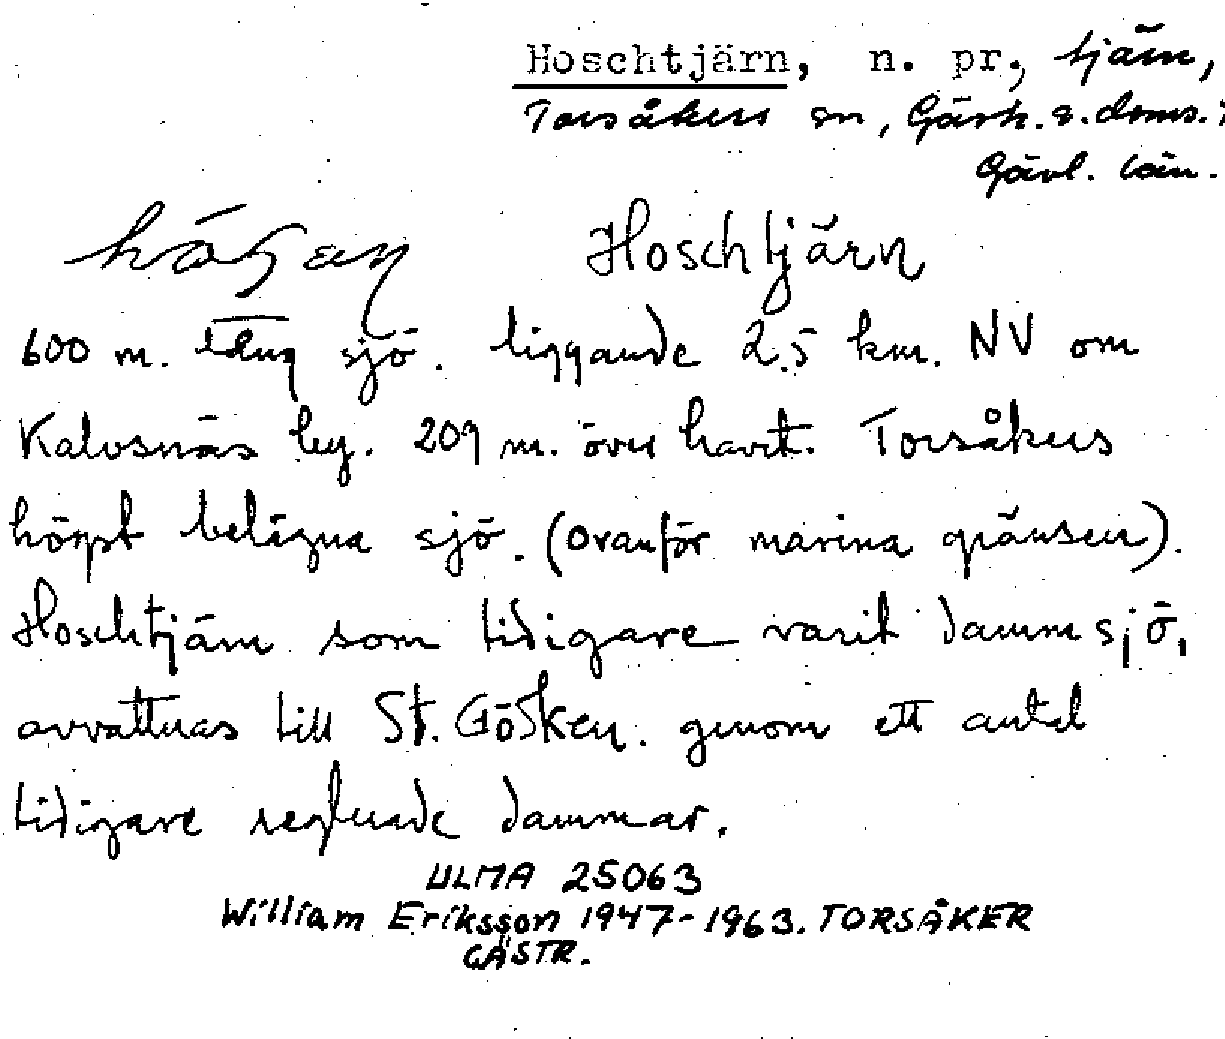 Hoschtjärn, n. pr., tjärn,
Torsåkers sn, Gästr. s. doms.;
Gävl. län.
Hoschtjärn
600 m. lång sjö. liggande 2.5 km. NV om
Kalvsnäs by. 209 m. över havet. Torsåkers
högst belägna sjö. (ovanför marina gränsen).
Hoschtjärn som tidigare varit dammsjö,
avvattnas till St. Gösken. genom ett antal
tidigare reglerade dammar.
ULMA 25063
William Eriksson 1947-1963. TORSÅKER
GÄSTR.